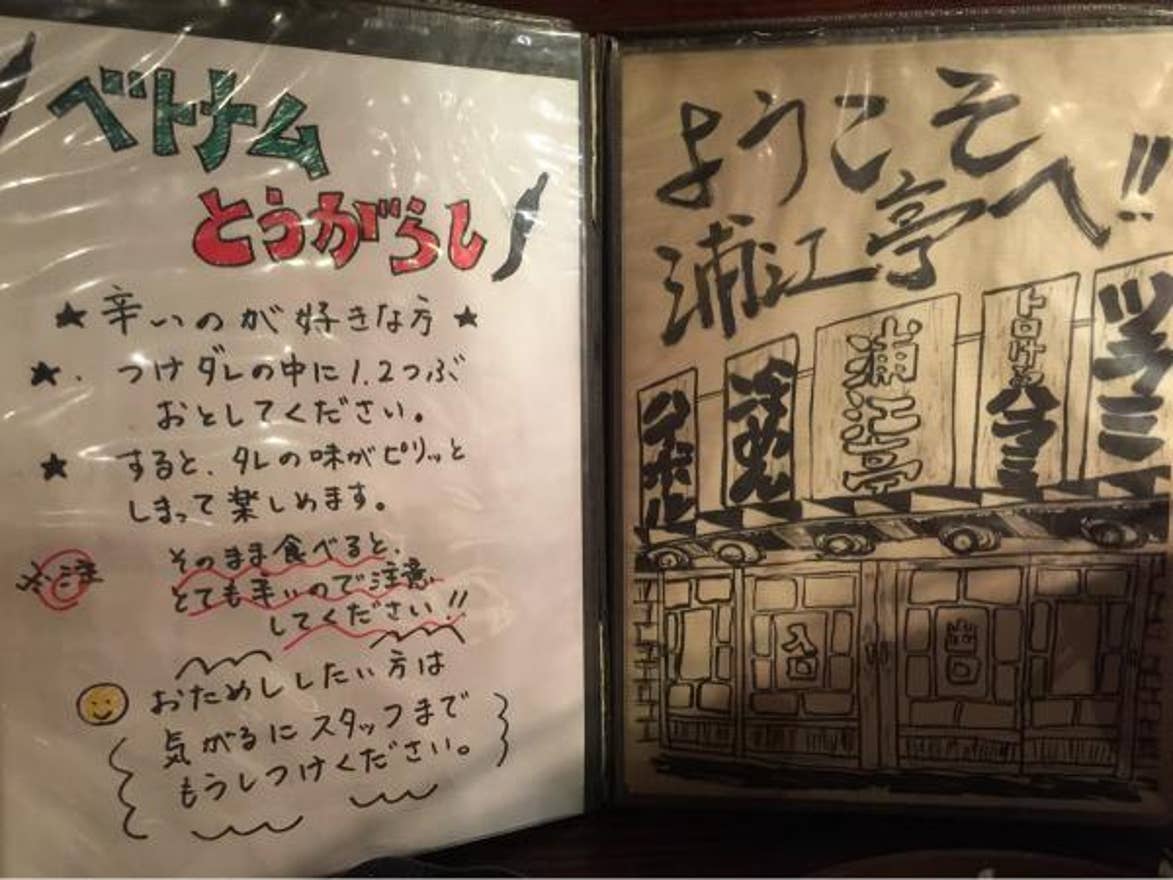 ベトナム
とうがらし
★辛いのが好きな方★
★.つけダレの中に1.2つぶ
おとしてください。
★すると、タレの味がピリッと
しまって楽しめます。
そのまま食べると、
とても辛いので注意
してください!!
おためししたい方は
気がるにスタッフまで
もうしつけください。
ようこそ
浦江亭へ!!
ハイボール
冷めん
浦江亭
トロけるハラミ
ツラミ
入口
出口